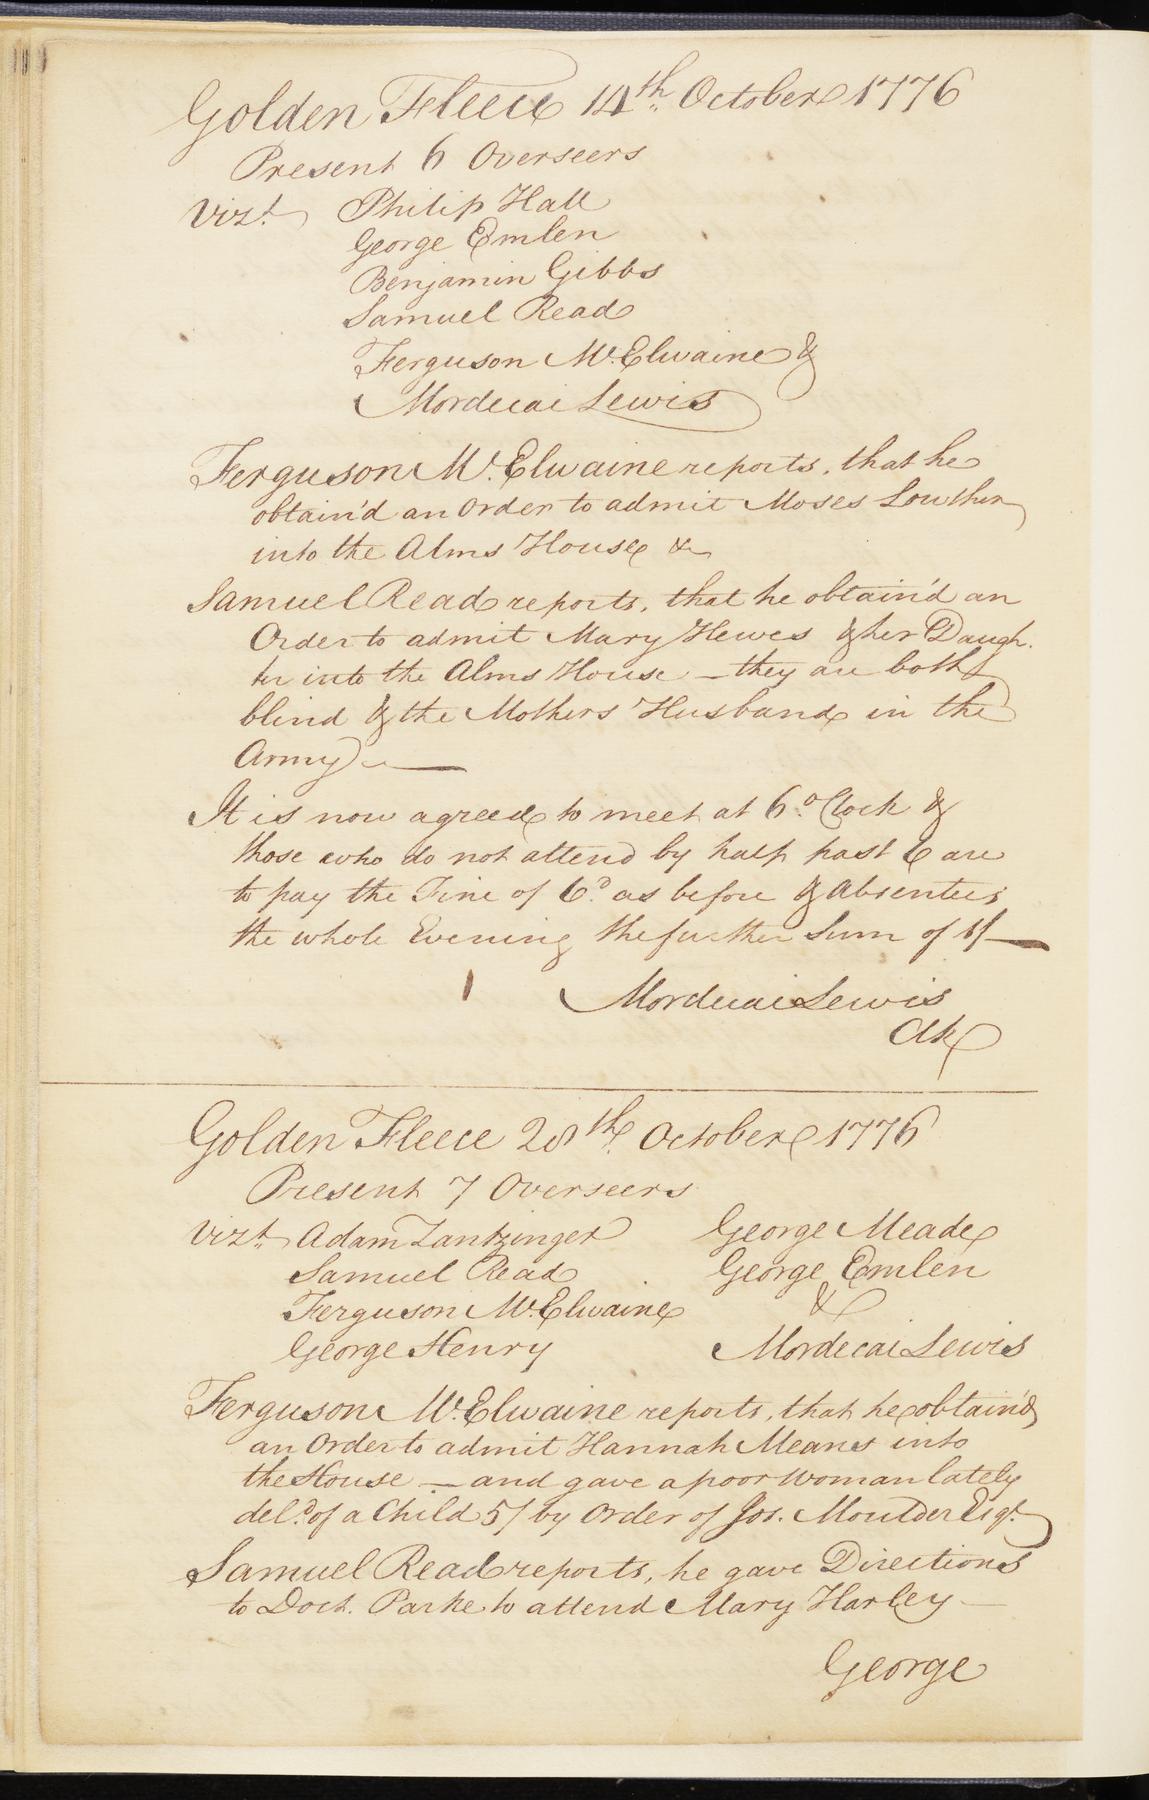 Golden Fleece 14th. October 1776
Present 6 Overseers
Vizt. Philip Hall
George Emlen
Benjamin Gibbs
Samuel Read
Ferguson Mc.Elwaine &
Mordecai Lewis
Ferguson Mc.Elwaine reports, that he
obtain'd an Order to admit Moses Lowther
into the Alms House &
Samuel Read reports, that he obtain'd an
Order to admit Mary Hewes & her Daugh.
ter into the Alms House – they are both
blind & the Mothers Husband in the
Army —
It is now agreed to meet at 6 .oClock &
those who do not attend by half past 6 are
to pay the Fine of 6.d as before & Absentees
the whole Evening the further Sum of 1/ —
Mordecai Lewis
Clk
Golden Fleece 28th. October 1776
Present 7 Overseers
Vizt. Adam Zantzinger
Samuel Read
Ferguson Mc.Elwaine
George Henry
George Meade
George Emlen
&
Mordecai Lewis
Ferguson Mc.Elwaine reports, that he obtain'd
an Order to admit Hannah Means into
the House – and gave a poor Woman lately
del.d of a Child 5/ by Order of Jos. Moulder Esqr.
Samuel Read reports, he gave Directions
to Doct. Parke to attend Mary Harley —
George